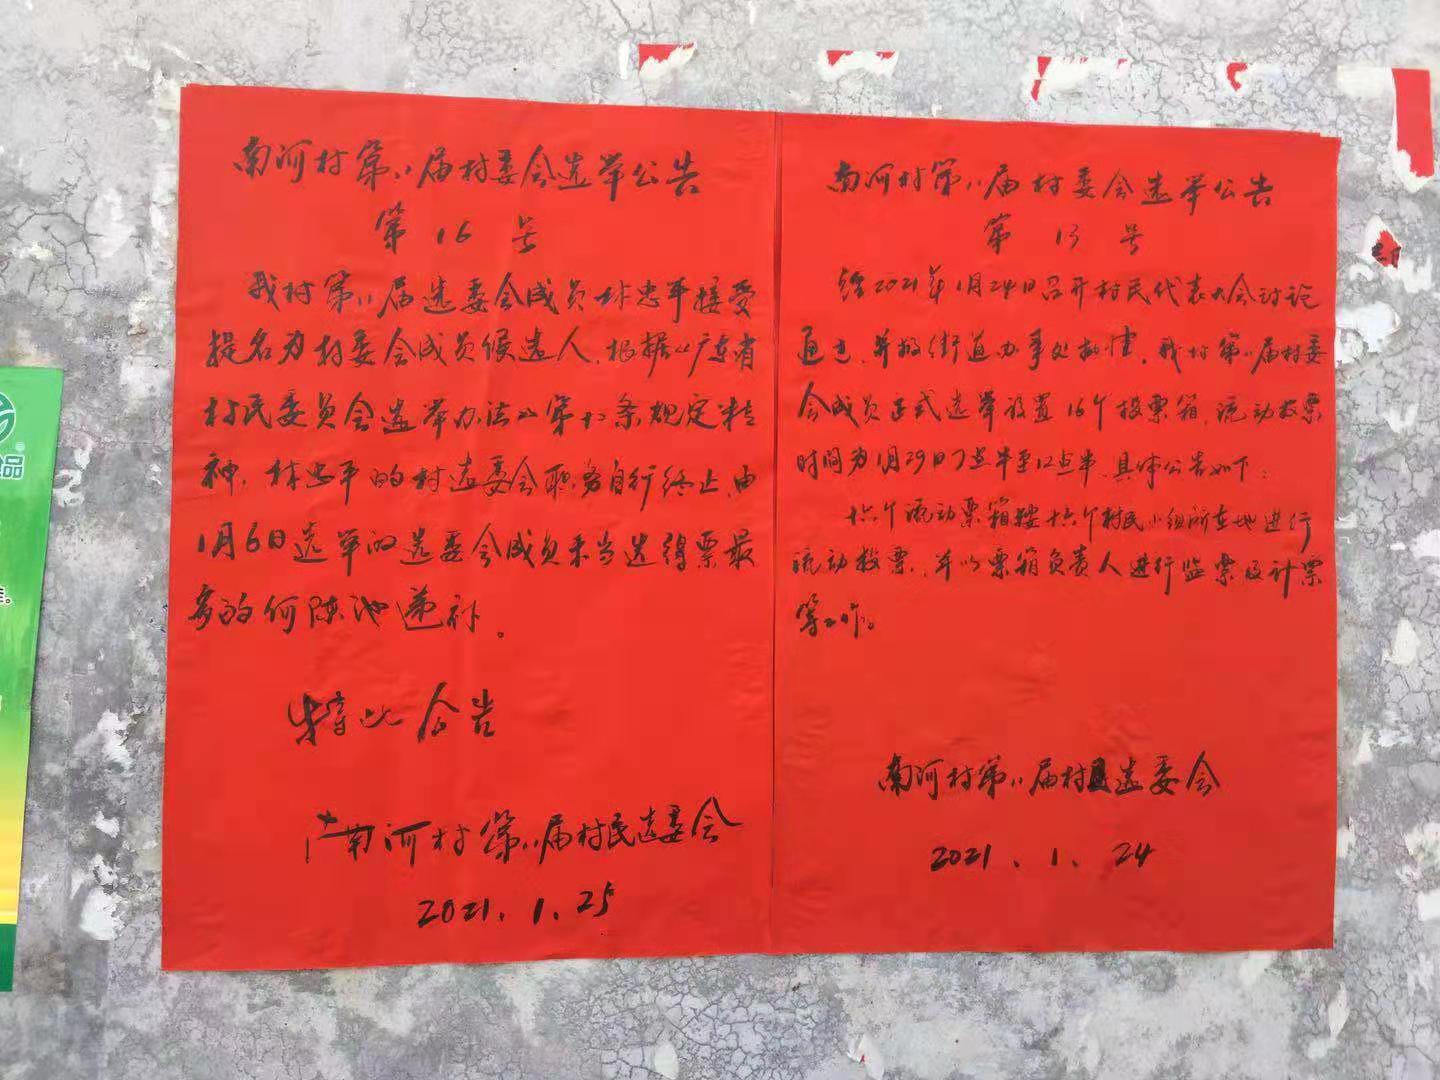 南河村第八届村委会选举公告
第16号
我村第八届选委会成员林忠平接受
提名为村委会成员候选人,根据《广东省
村民委员会选举办法》第十二条规定精
神,林忠平的村选委会职务自行终止,由
1月6日选举的选委会成员未当选得票最
多的何陈池递补。
特此公告
南河村第八届村民选委会
2021.1.25
南河村第八届村委会选举公告
第13号
经2021年1月24日召开村民代表大会讨论
通过,并报街道办事处批准,我村第八届村委
会成员正式选举设置16个投票箱,流动投票
时间为1月29日7点半至12点半,具体公告如下:
十六个流动票箱按十六个村民小组所在地进行
流动投票,并以票箱负责人进行监票及计票
等工作。
南河村第八届村民选委会
2021.1.24
品